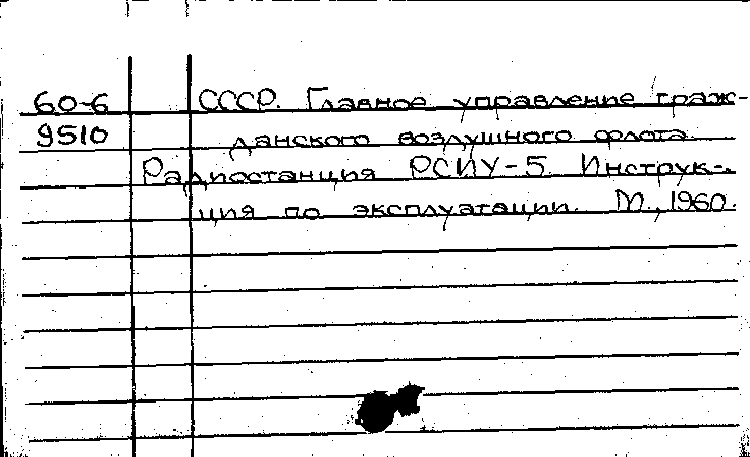 60-6 СССР. Главное управление граж-
9510 данского воздушного флота.
Радиостанция РСИУ-5. Инструк-
ция по эксплуатации. М., 1960.